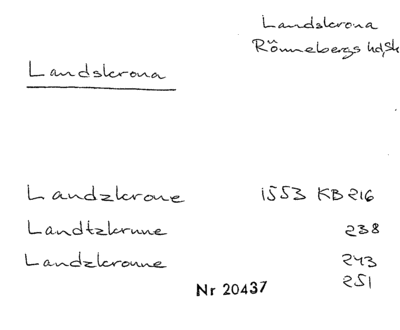 Landskrona
Rönnebergs hd, Sk
Landskrona
Landzkrone 1553 KB 216
Landtzkrunne 238
Landzkronne 243
251
Nr 20437